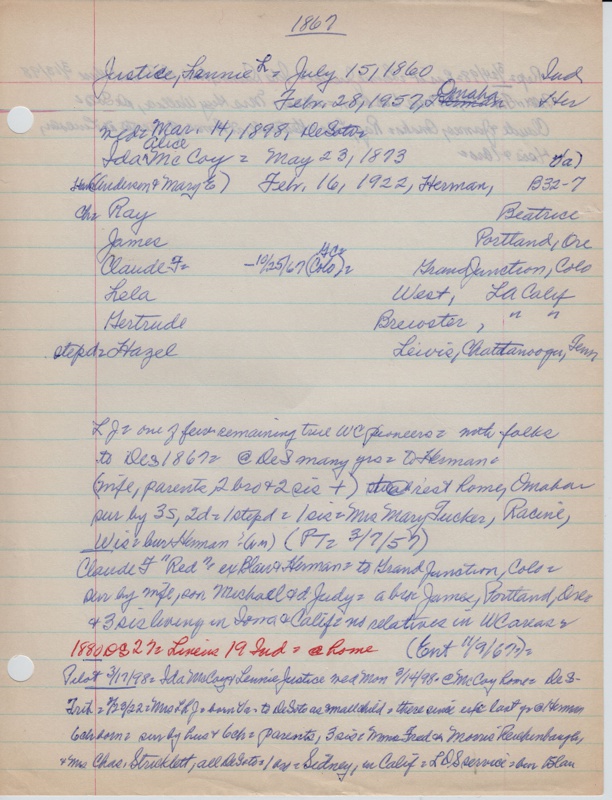 1867
Justice, Lannie L = July 15, 1860 Ind
Febr. 28, 1957, Omaha Herman Her
wed = Mar. 14, 1898, DeSoto =
Ida Alice McCoy = May 23, 1873 Va)
(Anderson & Mary E) Febr. 16, 1922, Herman, B32-7
Ch = Ray Beatrice
James Portland, Ore
Claude F = - 10/25/67 (Colo) = Grand Junction, Colo
Lela West, LA Calif
Gertrude Brewster, " "
stepd = Hazel Lewis, Chattanooga, Tenn
L J = one of few remaining true WC pioneers = with folks
to DeS 1867 = @ DeS many yrs = to Herman =
(wife, parents, 2 bro & 2 sis +) rest home, Omaha
sur by 3s, 2d = 1 stepd = 1 sis = Mrs Mary Tucker, Racine,
Wis = bur Herman (PT = 3/7/57)
Claude F "Red" ex Blair & Herman = to Grand Junction, Colo =
sur by wife, son Michael & d Judy = a bro James, Portland, Ore =
& 3 sis living in Iowa & Calif = no relatives in WC area =
1880 DS 27 = Linius 19 Ind = @ Rome (Ent 11/9/67) =
Pilot 3/17/98 = Ida McCoy & Lennie Justice wed Mon 3/14/98 = @ McCoy home = DeS -
Trib = 2/23/22 = Mrs L J = born Va = to DeSoto as small child = there since exc last yr @ Herman
6 ch born = sur by hus & 6 ch = parents, 3 sis = Mmes Fred & Morris Reichenbaugh,
& Mrs Chas. Stricklett, all DeSoto = 1 bro = Sidney, in Calif = LDS service = bur Blair